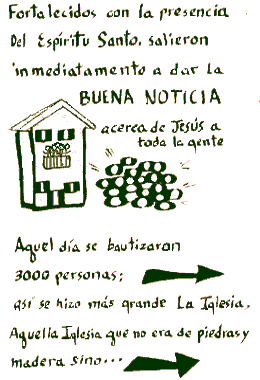 Fortalecidos con la presencia
Del Espíritu Santo, salieron
inmediatamento a dar la
BUENA NOTICIA
acerca de Jesús a
toda la gente
Aquel día se bautizaron
3000 personas;
así se hizo más grande La Iglesia.
Aquella Iglesia que no era de piedras y
madera sino...